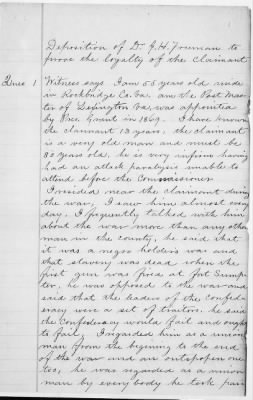 Deposition of Dr. J. H. Freeman to
prove the loyalty of the claimant
Ques 1 Witness says I am 55 years old reside
in Rockbridge Co. Va. am the Post Mas-
ter of Lexington Va, was appointed
by Pres. Grant in 1869. I have known
the claimant 13 years, the claimant
is a very old man and must be
80 years old, he is very infirm having
had an attack paralysis unable to
attend before the Commissioner
I resided near the claimant during
the war, I saw him almost every
day. I frequently talked with him
about the war more than any other
man in the county, he said that
it was a negro holders war and
that slavery was dead when the
first gun was fired at Fort Sump-
ter, he was opposed to the war and
said that the leaders of the Confed-
eracy were a set of traitors, he said
the Confederacy would fail and ought
to fail, I regarded him as a union
man from the begining to the end
of the war and an outspoken one
too, he was regarded as a union
man by every body he took pain